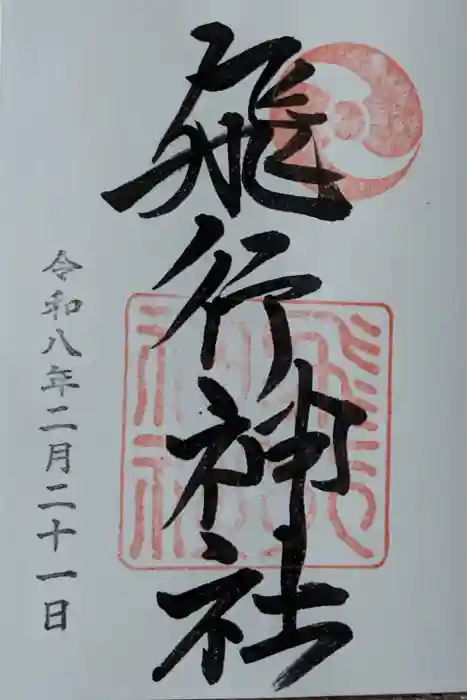 飛行神社
令和八年二月二十一日